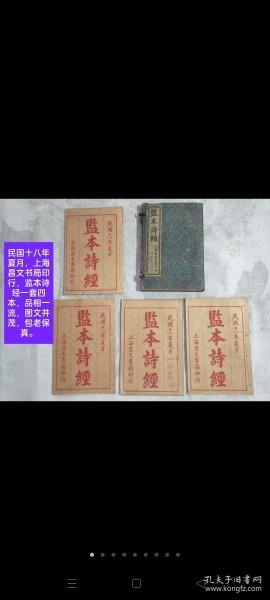 民国十八年
夏月，上海
昌文书局印
行，监本诗
经一套四
本，品相一
流，图文并
茂，包老保
真。
民國十八年夏月
監本詩經
上海昌文書局印行
監本詩經
民國十八年夏月
監本詩經
上海昌文書局印行
民國十八年夏月
監本詩經
上海昌文書局印行
民國十八年夏月
監本詩經
上海昌文書局印行
孔夫子旧书网
www.kongfz.com